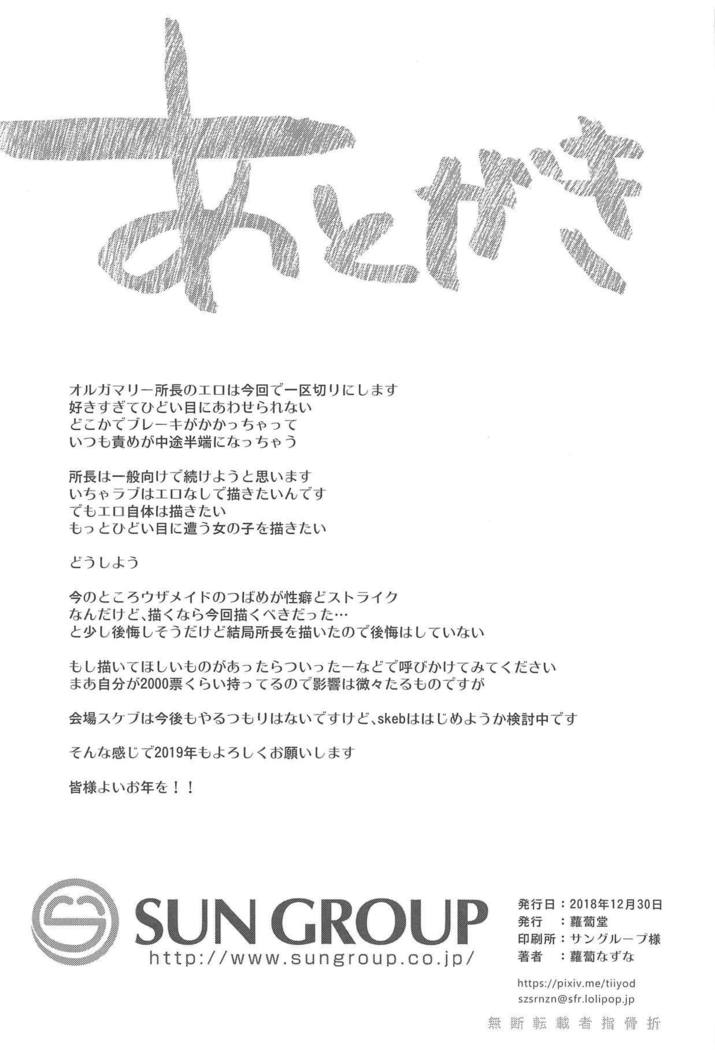 あとがき
オルガマリー所長のエロは今回で一区切りにします
好きすぎてひどい目にあわせられない
どこかでブレーキがかかっちゃって
いつも責めが中途半端になっちゃう
所長は一般向けで続けようと思います
いちゃラブはエロなしで描きたいんです
でもエロ自体は描きたい
もっとひどい目に遭う女の子を描きたい
どうしよう
今のところウザメイドのつばめが性癖どストライク
なんだけど、描くなら今回描くべきだった…
と少し後悔しそうだけど結局所長を描いたので後悔はしていない
もし描いてほしいものがあったらついったーなどで呼びかけてみてください
まあ自分が2000票くらい持ってるので影響は微々たるものですが
会場スケブは今後もやるつもりはないですけど、skebははじめようか検討中です
そんな感じで2019年もよろしくお願いします
皆様よいお年を！！
SUN GROUP
http://www.sungroup.co.jp/
発行日：2018年12月30日
発行　：蘿蔔堂
印刷所：サングループ様
著者　：蘿蔔なずな
https://pixiv.me/tiiyod
szsrnzn@sfr.lolipop.jp
無断転載者指骨折